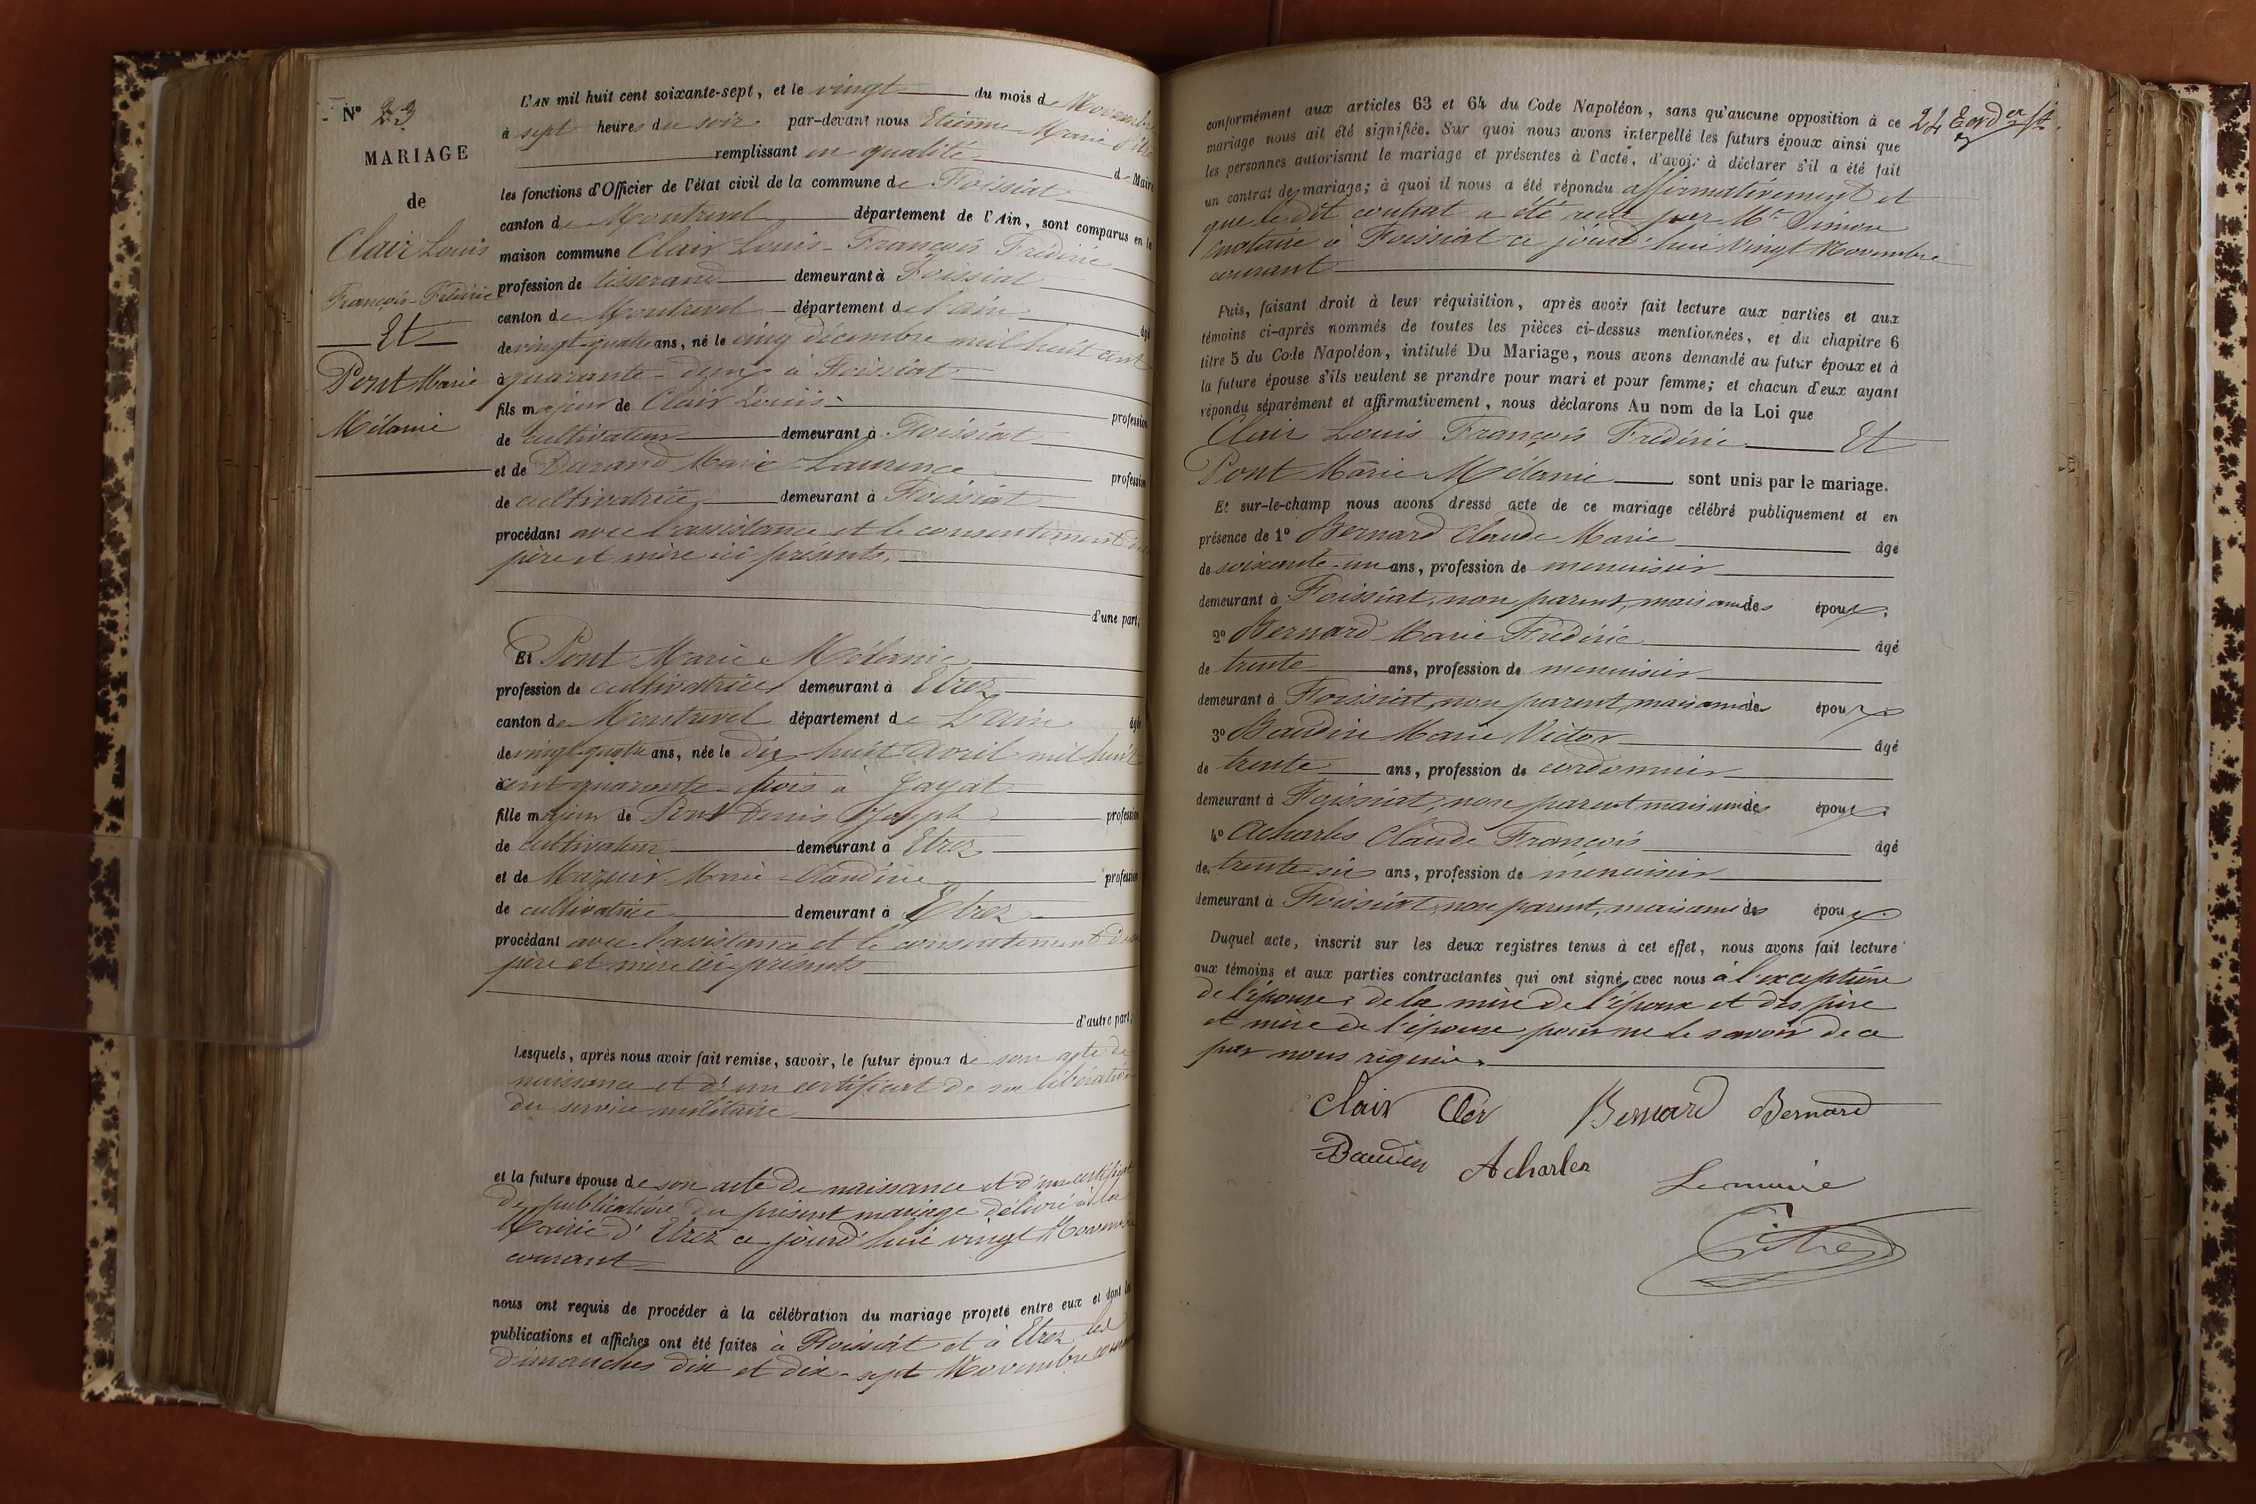 N° 23
MARIAGE
de
Clair Louis
François-Frédéric
Et
Pont Marie
Mélanie
L'AN mil huit cent soixante-sept, et le vingt du mois de Novembre
à sept heures du soir par-devant nous Etienne Marie
remplissant en qualité de Maire
les fonctions d'Officier de l'état civil de la commune de Foissiat
canton de Montrevel département de l'Ain, sont comparus en la
maison commune Clair Louis-François Frédéric
profession de tisserand demeurant à Foissiat
canton de Montrevel département de l'ain âgé
de vingt-quatre ans, né le cinq décembre mil huit cent
à quarante-deux à Foissiat
fils majeur de Clair Louis profession
de cultivateur demeurant à Foissiat
et de Durand Marie Laurence profession
de cultivatrice demeurant à Foissiat
procédant avec l'assistance et le consentement de ses
père et mère ici présents.
d'une part;
Et Pont Marie Mélanie
profession de cultivatrice demeurant à Etrez
canton de Montrevel département de L'ain âgée
de vingt-quatre ans, née le dix huit avril mil huit
à cent quarante-trois à Jayat
fille majeure de Pont Denis Joseph profession
de cultivateur demeurant à Etrez
et de Mazuir Marie-Claudine profession
de cultivatrice demeurant à Etrez
procédant avec l'assistance et le consentement de ses
père et mère ici présents
d'autre part;
Lesquels, après nous avoir fait remise, savoir, le futur époux de son acte de
naissance et d'un certificat de sa libération
du service militaire
et la future épouse de son acte de naissance et d'un certificat
de publication du présent mariage délivré à la
Mairie d'Etrez ce jourd'hui vingt Novembre
courant
nous ont requis de procéder à la célébration du mariage projeté entre eux et dont les
publications et affiches ont été faites à Foissiat et à Etrez les
dimanches dix et dix-sept Novembre courant
conformément aux articles 63 et 64 du Code Napoléon, sans qu'aucune opposition à ce
mariage nous ait été signifiée. Sur quoi nous avons interpellé les futurs époux ainsi que
les personnes autorisant le mariage et présentes à l'acte, d'avoir à déclarer s'il a été fait
un contrat de mariage; à quoi il nous a été répondu affirmativement et
que le dit contrat a été reçu par Me Simon
notaire à Foissiat ce jourd'hui vingt Novembre
courant
Puis, faisant droit à leur réquisition, après avoir fait lecture aux parties et aux
témoins ci-après nommés de toutes les pièces ci-dessus mentionnées, et du chapitre 6
titre 5 du Code Napoléon, intitulé Du Mariage, nous avons demandé au futur époux et à
la future épouse s'ils veulent se prendre pour mari et pour femme; et chacun d'eux ayant
répondu séparément et affirmativement, nous déclarons Au nom de la Loi que
Clair Louis François Frédéric Et
Pont Marie Mélanie sont unis par le mariage.
Et sur-le-champ nous avons dressé acte de ce mariage célébré publiquement et en
présence de 1° Bernard Claude Marie âgé
de soixante-un ans, profession de menuisier
demeurant à Foissiat, non parent, mais ami des époux.
2° Bernard Marie Frédéric âgé
de trente ans, profession de menuisier
demeurant à Foissiat, non parent, mais ami des époux
3° Baudin Marie Victor âgé
de trente ans, profession de cordonnier
demeurant à Foissiat, non parent mais ami des époux.
4° Acharles Claude François âgé
de trente-six ans, profession de menuisier
demeurant à Foissiat, non parent, mais ami des époux.
Duquel acte, inscrit sur les deux registres tenus à cet effet, nous avons fait lecture
aux témoins et aux parties contractantes qui ont signé avec nous à l'exception
de l'épouse, de la mère de l'époux et des père
et mère de l'épouse pour ne le savoir de ce
par nous requis.
Clair Cler Bernard Bernard
Baudin Acharles
Le maire